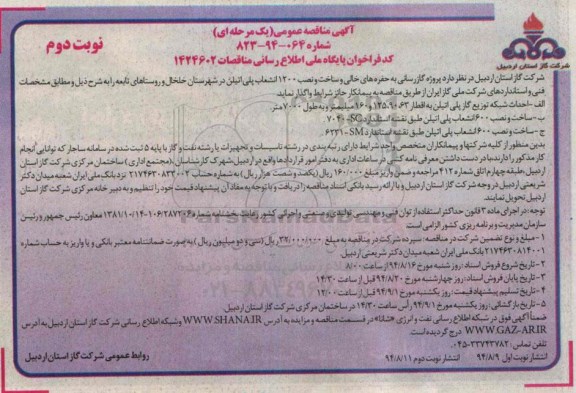 آگهی مناقصه عمومی (یک مرحله ای)
شماره ۰۶۴-۹۴-۸۲۳
کد فراخوان پایگاه ملی اطلاع رسانی مناقصات ۱۴۲۴۶۰۲
نوبت دوم
شرکت گاز استان اردبیل
شرکت گاز استان اردبیل در نظر دارد پروژه گازرسانی به حفره های خالی و ساخت و نصب ۱۲۰۰ انشعاب پلی اتیلن در شهرستان خلخال و روستاهای تابعه را به شرح ذیل و مطابق مشخصات
فنی و استانداردهای شرکت ملی گاز ایران از طریق مناقصه به پیمانکار حائز شرایط واگذار نماید.
الف - احداث شبکه توزیع گاز پلی اتیلن به اقطار ۶۳، ۹۰، ۱۲۵ و ۱۶۰ میلیمتر و به طول ۷۰۰۰ متر
ب - ساخت و نصب ۶۰۰ انشعاب پلی اتیلن طبق نقشه استاندارد SC-۷۰۴۰
ج - ساخت و نصب ۶۰۰ انشعاب پلی اتیلن طبق نقشه استاندارد SM-۶۲۳۱
بدین منظور از کلیه شرکتها و پیمانکاران متخصص واجد شرایط دارای رتبه بندی در رشته تاسیسات و تجهیزات یا رشته نفت و گاز با پایه ۵ ثبت شده در سامانه ساجار که توانایی انجام
کار مذکور را دارند با در دست داشتن معرفی نامه کتبی در ساعات اداری به دفتر امور قراردادها واقع در اردبیل، شهرک کارشناسان (مجتمع اداری) ساختمان مرکزی شرکت گاز استان
اردبیل طبقه چهارم اتاق شماره ۴۱۲ مراجعه و ضمن واریز مبلغ ۱۶۰/۰۰۰ ریال (یکصد و شصت هزار ریال) به شماره حساب ۲۱۷۴۶۳۰۸۳۳۰۰۲ نزد بانک ملی ایران شعبه میدان دکتر
شریعتی اردبیل در وجه شرکت گاز استان اردبیل و با ارائه رسید بانکی اسناد مناقصه را دریافت و با توجه به مفاد آن پیشنهاد قیمت خود را تنظیم و به دبیرخانه مرکزی شرکت گاز استان
اردبیل تحویل نمایند.
توجه: در اجرای ماده ۳ قانون حداکثر استفاده از توان فنی و مهندسی تولیدی و صنعتی و اجرائی کشور رعایت بخشنامه شماره ۱۰۶/۲۸۷۲۰۶-۱۳۸۱/۱۰/۱۴ معاون رئیس جمهور و رئیس
سازمان مدیریت و برنامه ریزی کشور الزامی است
۱ - مبلغ و نوع تضمین شرکت در مناقصه: سپرده شرکت در مناقصه به مبلغ ۳۲/۰۰۰/۰۰۰ ریال (سی و دو میلیون ریال) به صورت ضمانتنامه معتبر بانکی و یا واریز به حساب شماره
۲۱۷۴۶۳۰۸۱۴۰۰۱ بانک ملی ایران شعبه میدان دکتر شریعتی اردبیل.
۲ - تاریخ شروع فروش اسناد: روز شنبه مورخ ۹۴/۸/۱۶ از ساعت ۸/۰۰
۳ - تاریخ پایان فروش اسناد: روز چهارشنبه مورخ ۹۴/۸/۲۰ قبل از ساعت ۱۴/۳۰
۴ - تاریخ تسلیم پیشنهاد قیمت: روز یکشنبه مورخ ۹۴/۹/۱ قبل از ساعت ۱۲/۰۰
۵ - تاریخ بازگشائی: روز یکشنبه مورخ ۹۴/۹/۱ رأس ساعت ۱۴/۳۰ در ساختمان مرکزی شرکت گاز استان اردبیل
ضمناً آگهی فوق در شبکه اطلاع رسانی نفت و انرژی «شانا» در قسمت مناقصه و مزایده به آدرس WWW.SHANA.IR و شبکه اطلاع رسانی شرکت گاز استان اردبیل به آدرس
WWW.GAZ-AR.IR درج گردیده است.
تلفن تماس: ۳۳۷۴۳۷۸۲-۰۴۵
انتشار نوبت اول ۹۴/۸/۹ انتشار نوبت دوم ۹۴/۸/۱۱
روابط عمومی شرکت گاز استان اردبیل